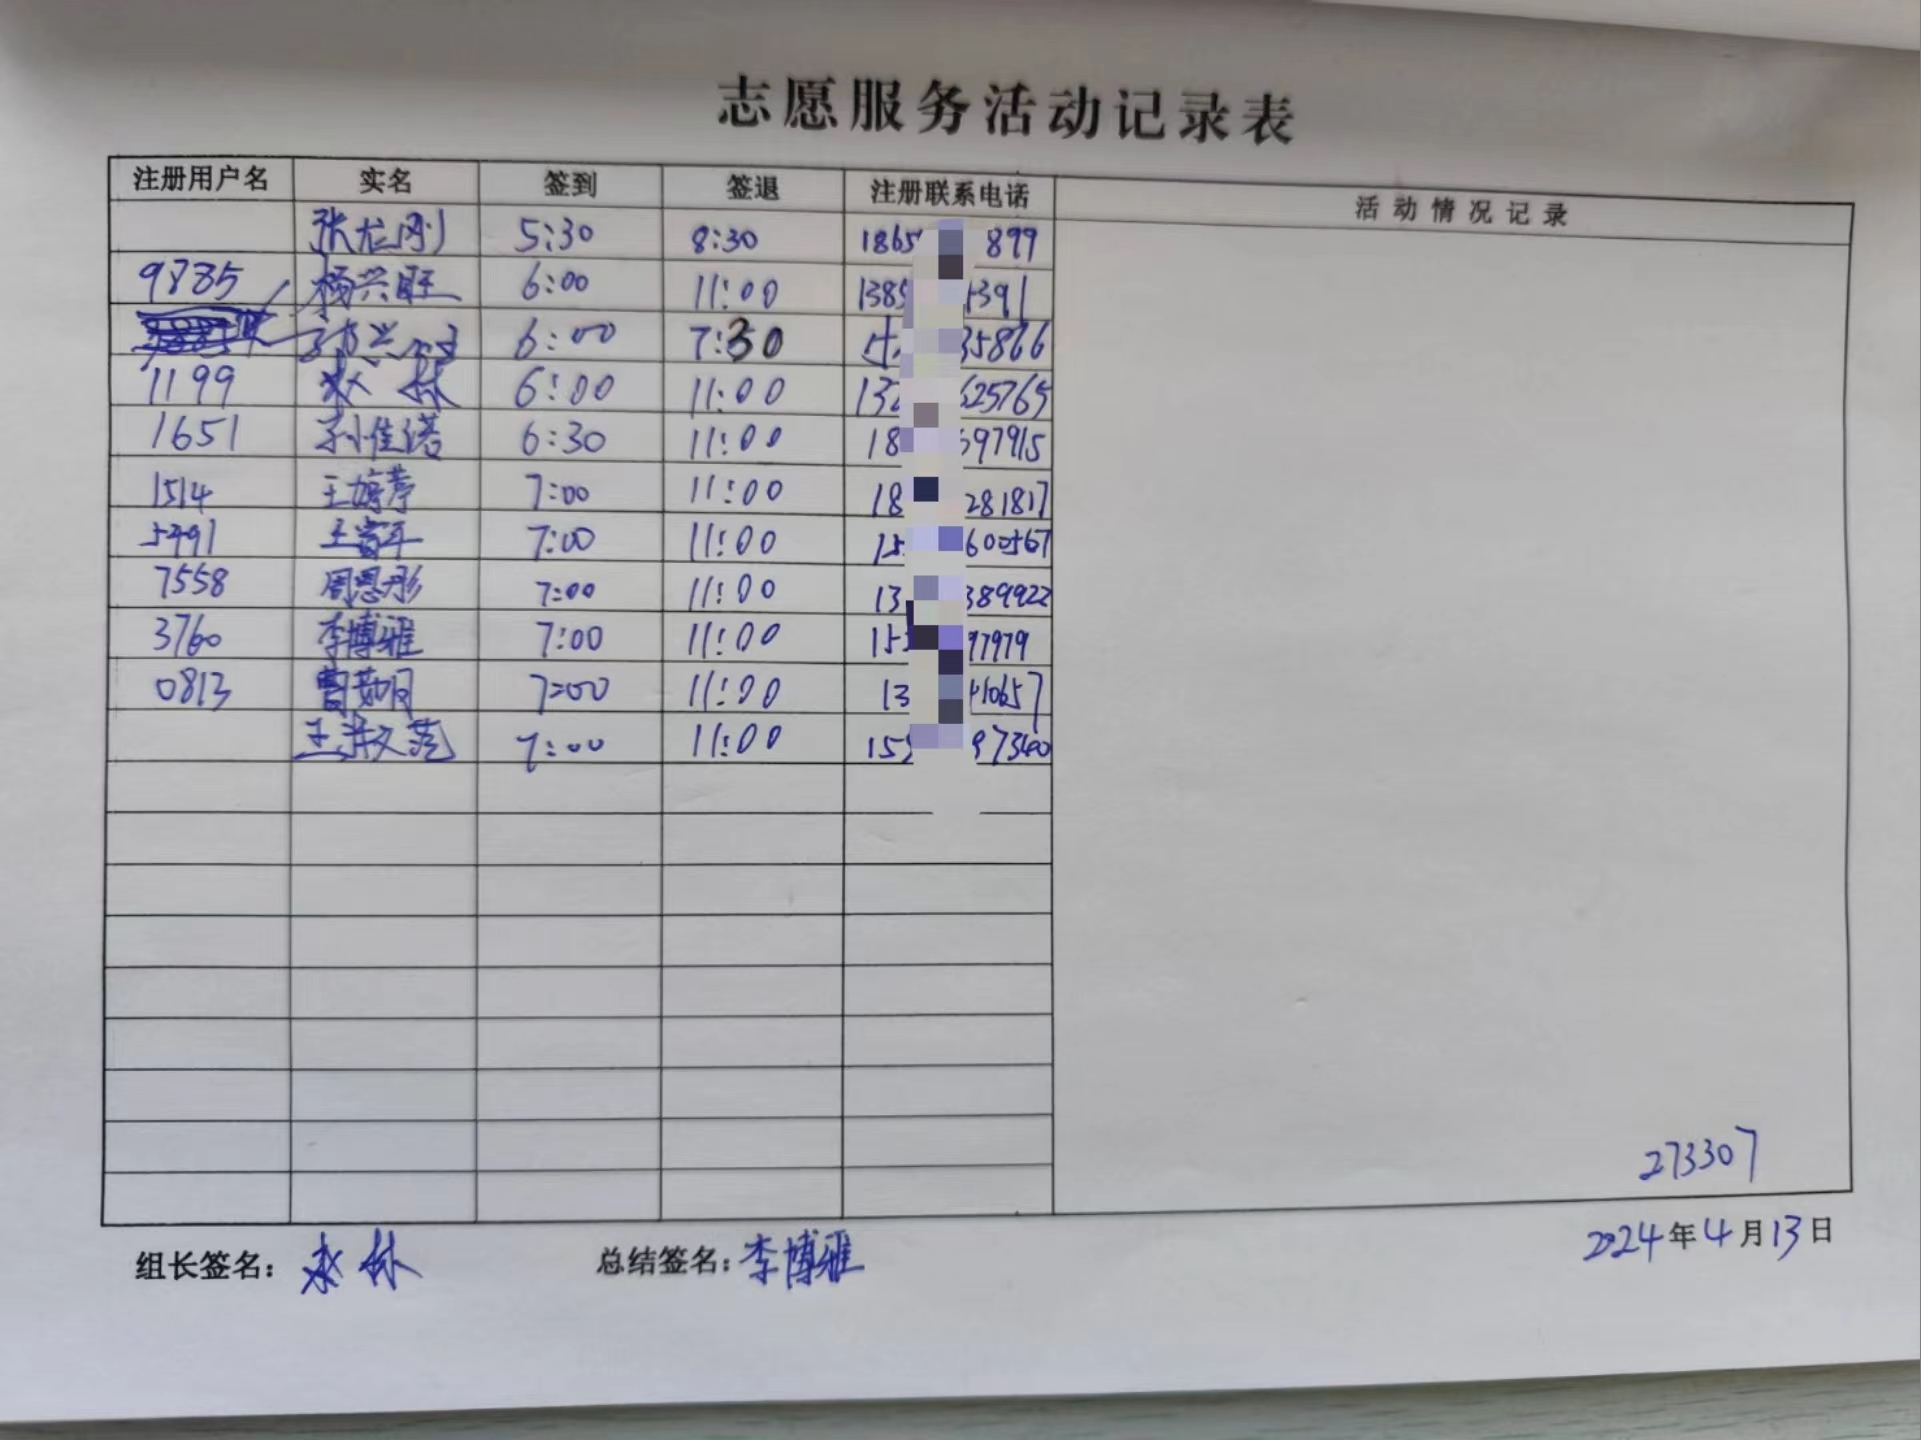 志愿服务活动记录表
注册用户名 实名 签到 签退 注册联系电话 活动情况记录
5:30 8:30 1865 899
9885 杨兴旺 6:00 11:00 1385 1391
6:00 7:30 35866
1199 林 6:00 11:00 132 625765
1651 孙佳诺 6:30 11:00 18 597915
1514 王婷葶 7:00 11:00 18 281817
5491 7:00 11:00 15 600567
7558 周恩彤 7:00 11:00 13 389922
3760 李博雅 7:00 11:00 15 97979
0813 曹茹月 7:00 11:00 13 410657
7:00 11:00 15 97340
273307
2024年4月13日
组长签名： 林 总结签名：李博雅